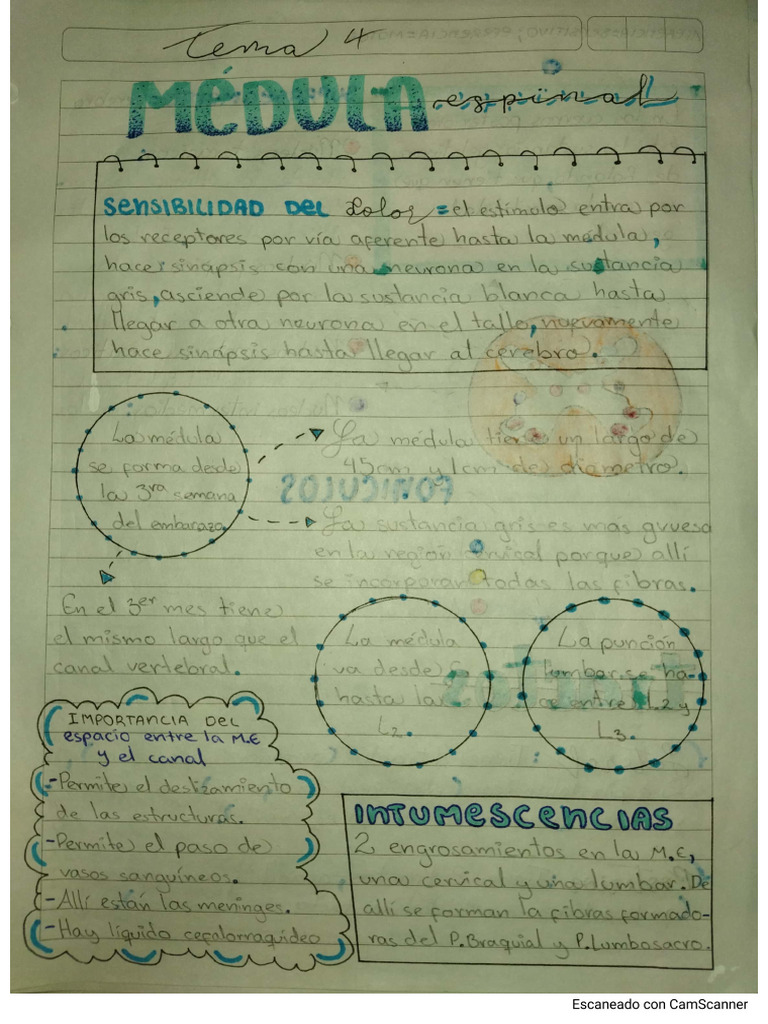 Tema 4
MÉDULA espinal
SENSIBILIDAD DEL Dolor = el estímulo entra por
los receptores por vía aferente hasta la médula,
hace sinápsis con una neurona en la sustancia
gris, asciende por la sustancia blanca hasta
llegar a otra neurona en el tallo, nuevamente
hace sinápsis hasta llegar al cerebro.
La médula
se forma desde
la 3ra semana
del embarazo
La médula tiene un largo de
45cm y 1cm de diametro.
La sustancia gris es más gruesa
en la región cervical porque allí
se incorporan todas las fibras.
En el 3er mes tiene
el mismo largo que el
canal vertebral.
La médula
va desde
hasta la
L2.
La punción
lumbar se ha-
ce entre L2 y
L3.
IMPORTANCIA DEL
espacio entre la M.E
y el canal
-Permite el deslizamiento
de las estructuras.
-Permite el paso de
vasos sanguíneos.
-Allí están las meninges.
-Hay líquido cefalorraquídeo
INTUMESCENCIAS
2 engrosamientos en la M.E,
una cervical y una lumbar. De
allí se forman la fibras formado-
ras del P. Braquial y P. Lumbosacro.
Escaneado con CamScanner